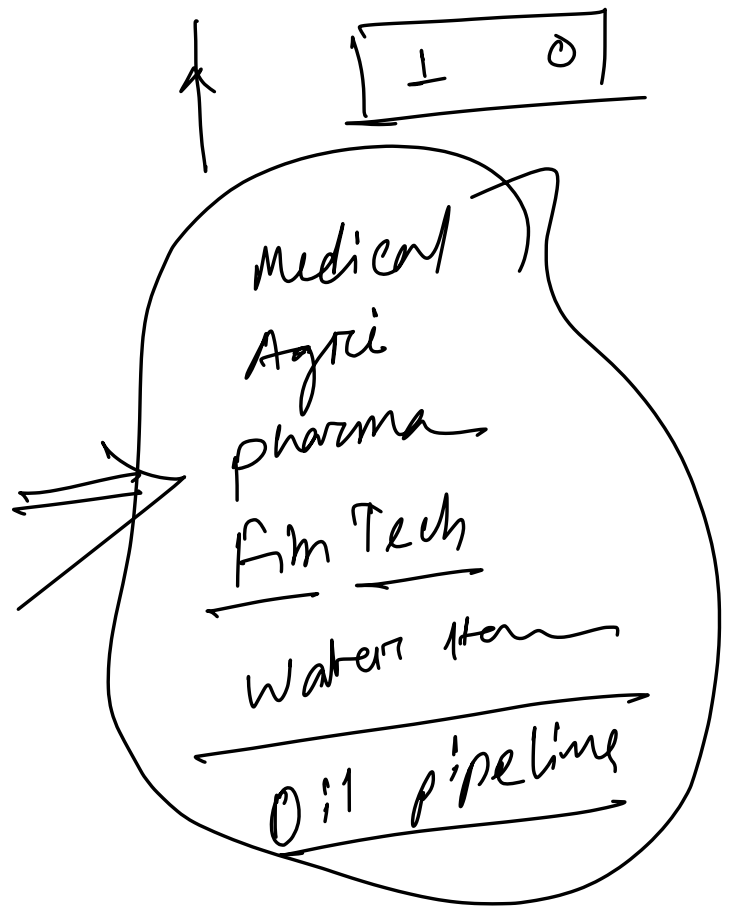 1 0
Medical
Agri
pharma
Fin Tech
Water
Oil pipeline